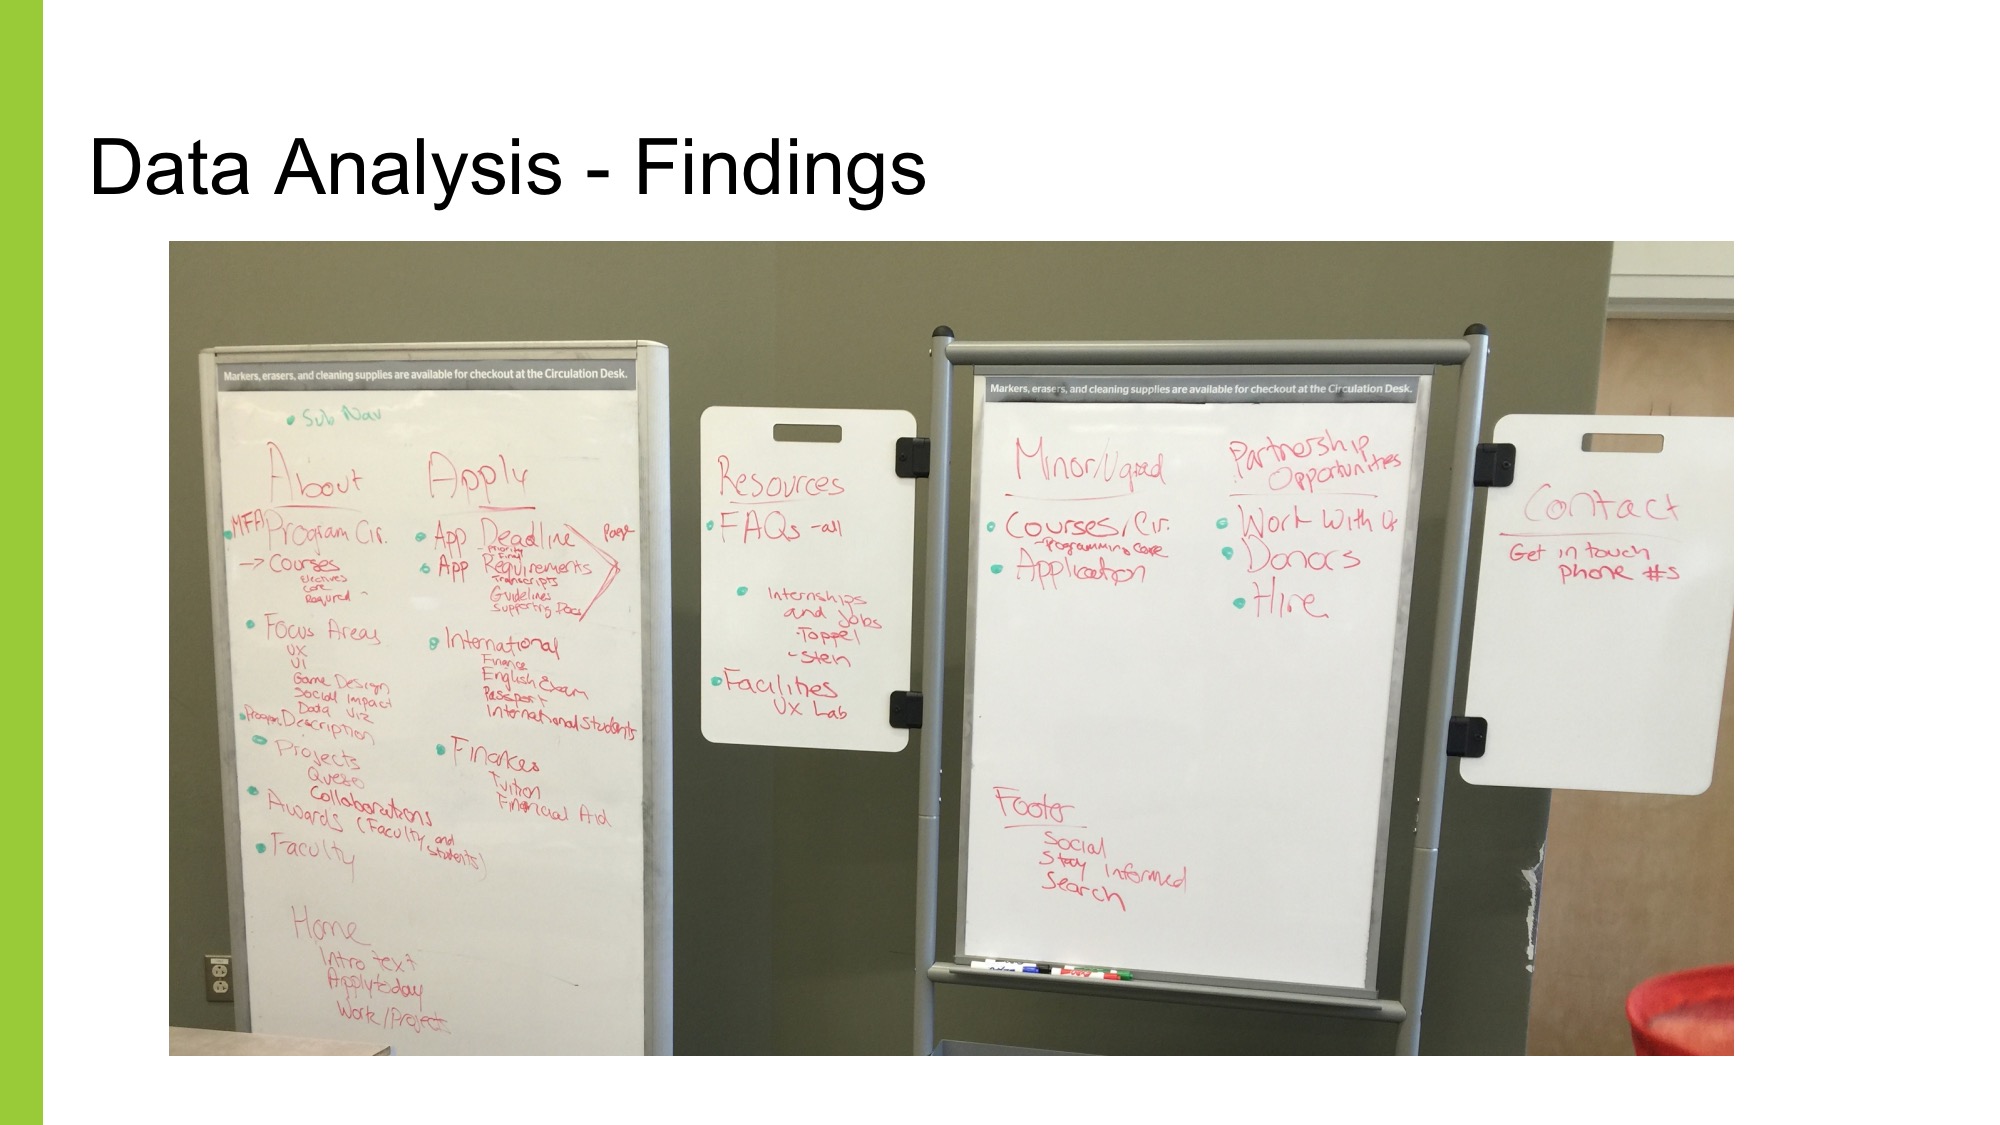 Data Analysis - Findings
Markers, erasers, and cleaning supplies are available for checkout at the Circulation Desk.
Sub Nav
About
MFA Program Cir.
→ Courses
Electives
Core
Required
Focus Areas
UX
UI
Game Design
Social Impact
Data Viz
Program Description
Projects
Collaborations
Awards (Faculty and
students)
Faculty
Home
Intro text
Apply today
Work/Projects
Apply
App Deadline
- Priority
- Final
Page
App Requirements
Transcripts
Guidelines
Supporting Docs
International
Finance
English Exam
Passport
International Students
Finances
Tuition
Financial Aid
Resources
FAQs - all
Internships
and jobs
- Toppel
Facilities
UX Lab
Markers, erasers, and cleaning supplies are available for checkout at the Circulation Desk.
Minor/Ugrad
Courses/Cir.
- Programming Core
Application
Partnership
Opportunities
Work With Us
Donors
Hire
Footer
Social
Stay Informed
Search
Contact
Get in touch
phone #s